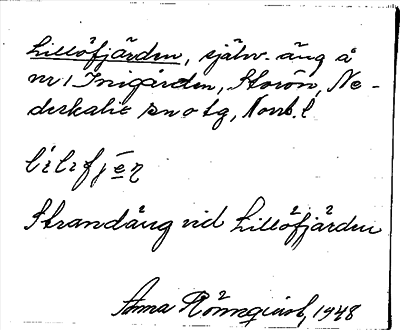 Lillöfjärden, själv. äng å
nr 1 Inigården, Storön, Ne-
derkalix sn o tg, Norrb. l
lilöfjēṇ
Strandäng vid Lillöfjärden
Anna Rönnqvist, 1948